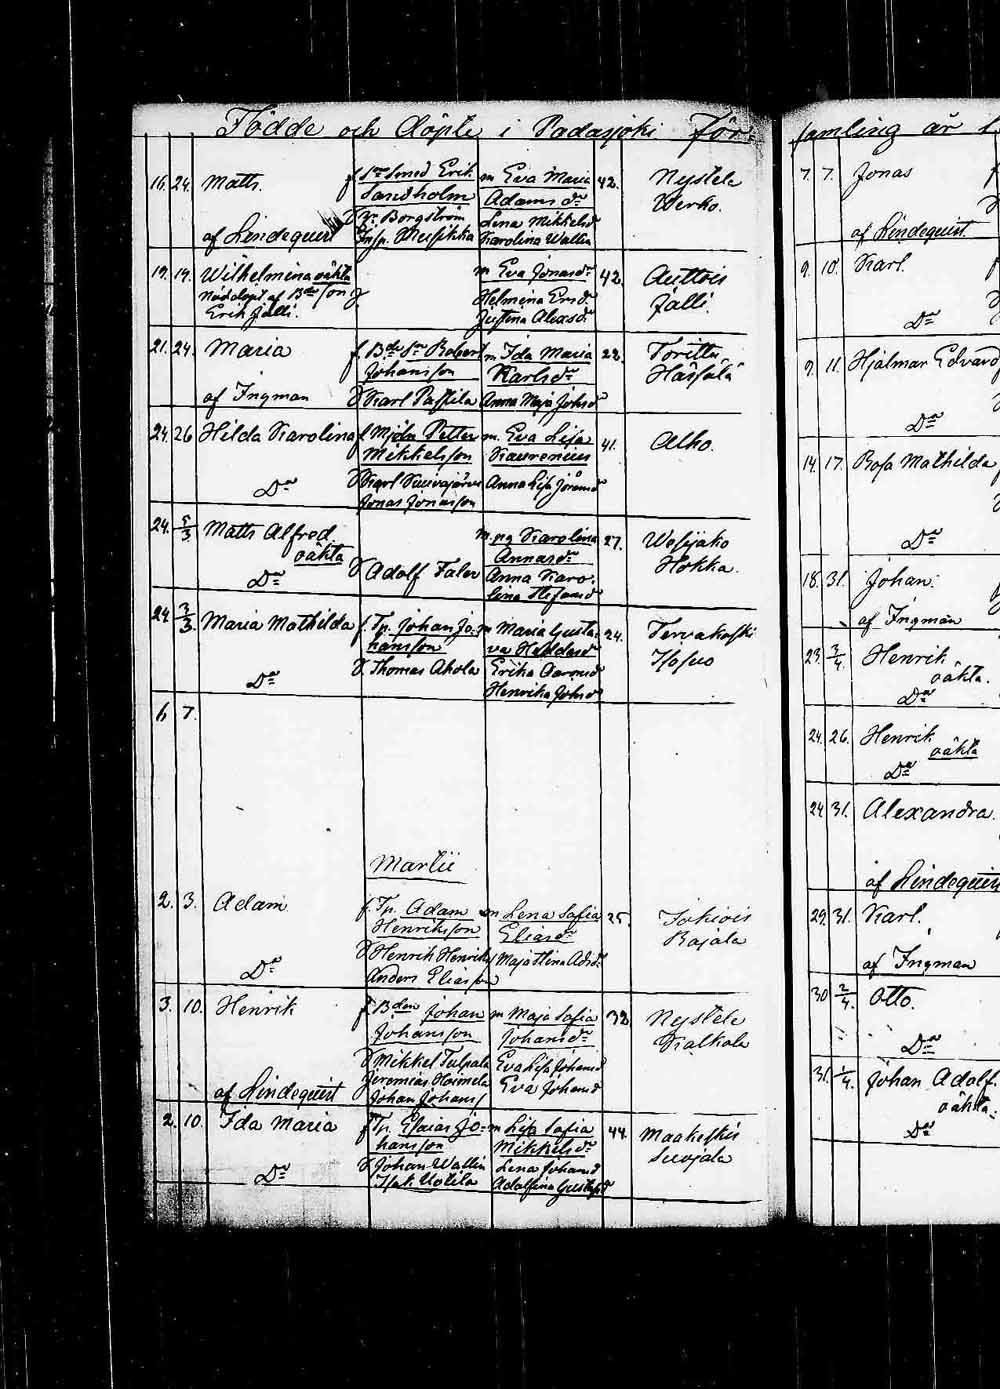 Födde och döpte i Padasjoki För-
16. 24. Matts.
af Lindequist
f. Sme Smed Erik
Sandholm
Insp. Musikka
m Eva Maria
Adamsdr
Lena Mikkelsd
Karolina Wallin
42.
Nystele
Werko.
19. 19. Wilhelmina oäkta
Nöddöpt af Bde son
Erik Jälli.
m Eva Jonasdr
Helmina Ersdr
Justina Alexsdr
42.
Auttois
Jälli.
21. 24. Maria
af Ingman
f. Bde Sn Robert
Johansson
Karl Pastila
m Ida Maria
Karlsdr
Anna Maja Johsd
22.
Torittu
24. 26 Hilda Karolina
Da
f Mjöln Petter
Mikkelsson
Jonas Jonasson
m. Eva Lisa
Anna Lisa
41.
Alho.
24. 5/3. Matts Alfred
oäkta
Da
Adolf Faler
m. pg Karolina
Annasdr
Anna Karo-
lina Stefansd
27.
Wesijako
Hokka.
24. 3/3. Maria Mathilda
Da
f. Tp. Johan Jo-
hansson
Thomas Ahola
m Maria Gusta-
va
Erika Aaronsd
Henrika Johsd
24.
Tervakoski
6 7.
Martii
2. 3. Adam
Da
f. Tp. Adam
Henriksson
Henrik Henriks
Anders Eliasson
m Lena Sofia
Eliasdr
Maja Stina Adsdr
25.
Jokiois
Rajala
3. 10. Henrik
af Lindequist
f Bden Johan
Johansson
Mikkel Tulpala
Jeremias Heimela
Johan Johanss
m Maja Sofia
Johansdr
Eva Lisa Johansd
Eva Johansd
32
Nystele
Kalkola
2. 10. Ida Maria
Da
f Tp. Elaias Jo-
hansson
Johan Wallin
Isak Uotila
m Lisa Sofia
Mikkelsdr
Lena Johansd
Adolfina Gustafsd
44.
Maakeskis
Seevjala
samling år
7. 7. Jonas
af Lindequist.
9. 10. Karl.
Da
9. 11. Hjalmar Edvard
Da
14. 17. Rosa Mathilda
Da
18. 31. Johan.
af Ingman
23. 3/4. Henrik
oäkta.
Da
24. 26. Henrik
oäkta
Da
24 31. Alexandra.
af Lindequist
29. 31. Karl.
af Ingman
30 2/4. Otto.
Da
31. 1/4. Johan Adolf.
oäkta.
Da